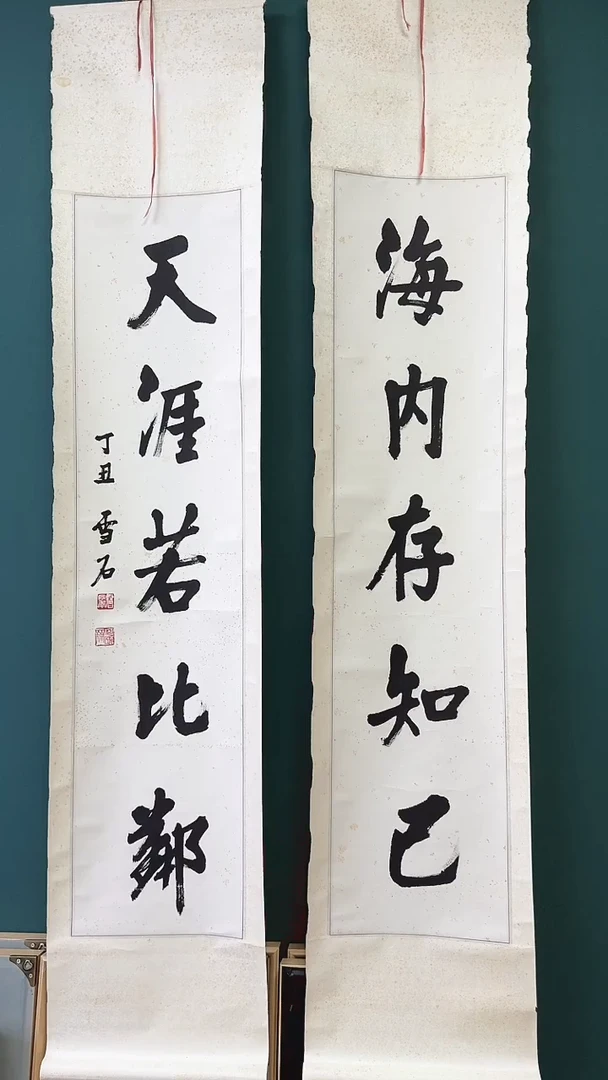 海内存知己
天涯若比鄰
丁丑 雪石